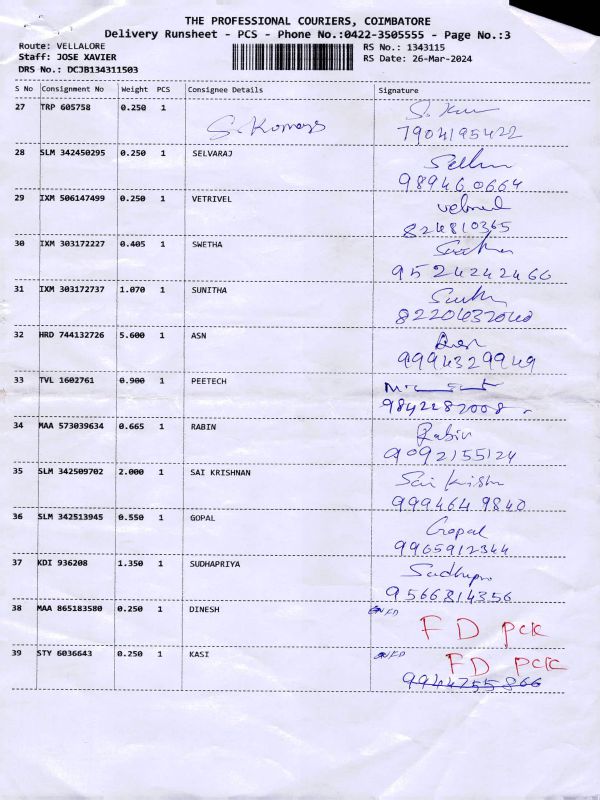 THE PROFESSIONAL COURIERS, COIMBATORE
Delivery Runsheet - PCS - Phone No.:0422-3505555 - Page No.:3
Route: VELLALORE RS No.: 1343115
Staff: JOSE XAVIER RS Date: 26-Mar-2024
DRS No.: DCJB134311503
S No Consignment No Weight PCS Consignee Details Signature
27 TRP 605758 0.250 1
7904195422
28 SLM 342450295 0.250 1 SELVARAJ
989460664
29 IXM 506147499 0.250 1 VETRIVEL
824810365
30 IXM 303172227 0.405 1 SWETHA
95242424 60
31 IXM 303172737 1.070 1 SUNITHA
32 HRD 744132726 5.600 1 ASN
9994329949
33 TVL 1602761 0.900 1 PEETECH
9842282008
34 MAA 573039634 0.665 1 RABIN Rabin
9092155124
35 SLM 342509702 2.000 1 SAI KRISHNAN Sai Krishn
999464 9840
36 SLM 342513945 0.550 1 GOPAL Gopal
9965912344
37 KDI 936208 1.350 1 SUDHAPRIYA
9566814356
38 MAA 865183580 0.250 1 DINESH FD pck
39 STY 6036643 0.250 1 KASI FD pck
9944755866